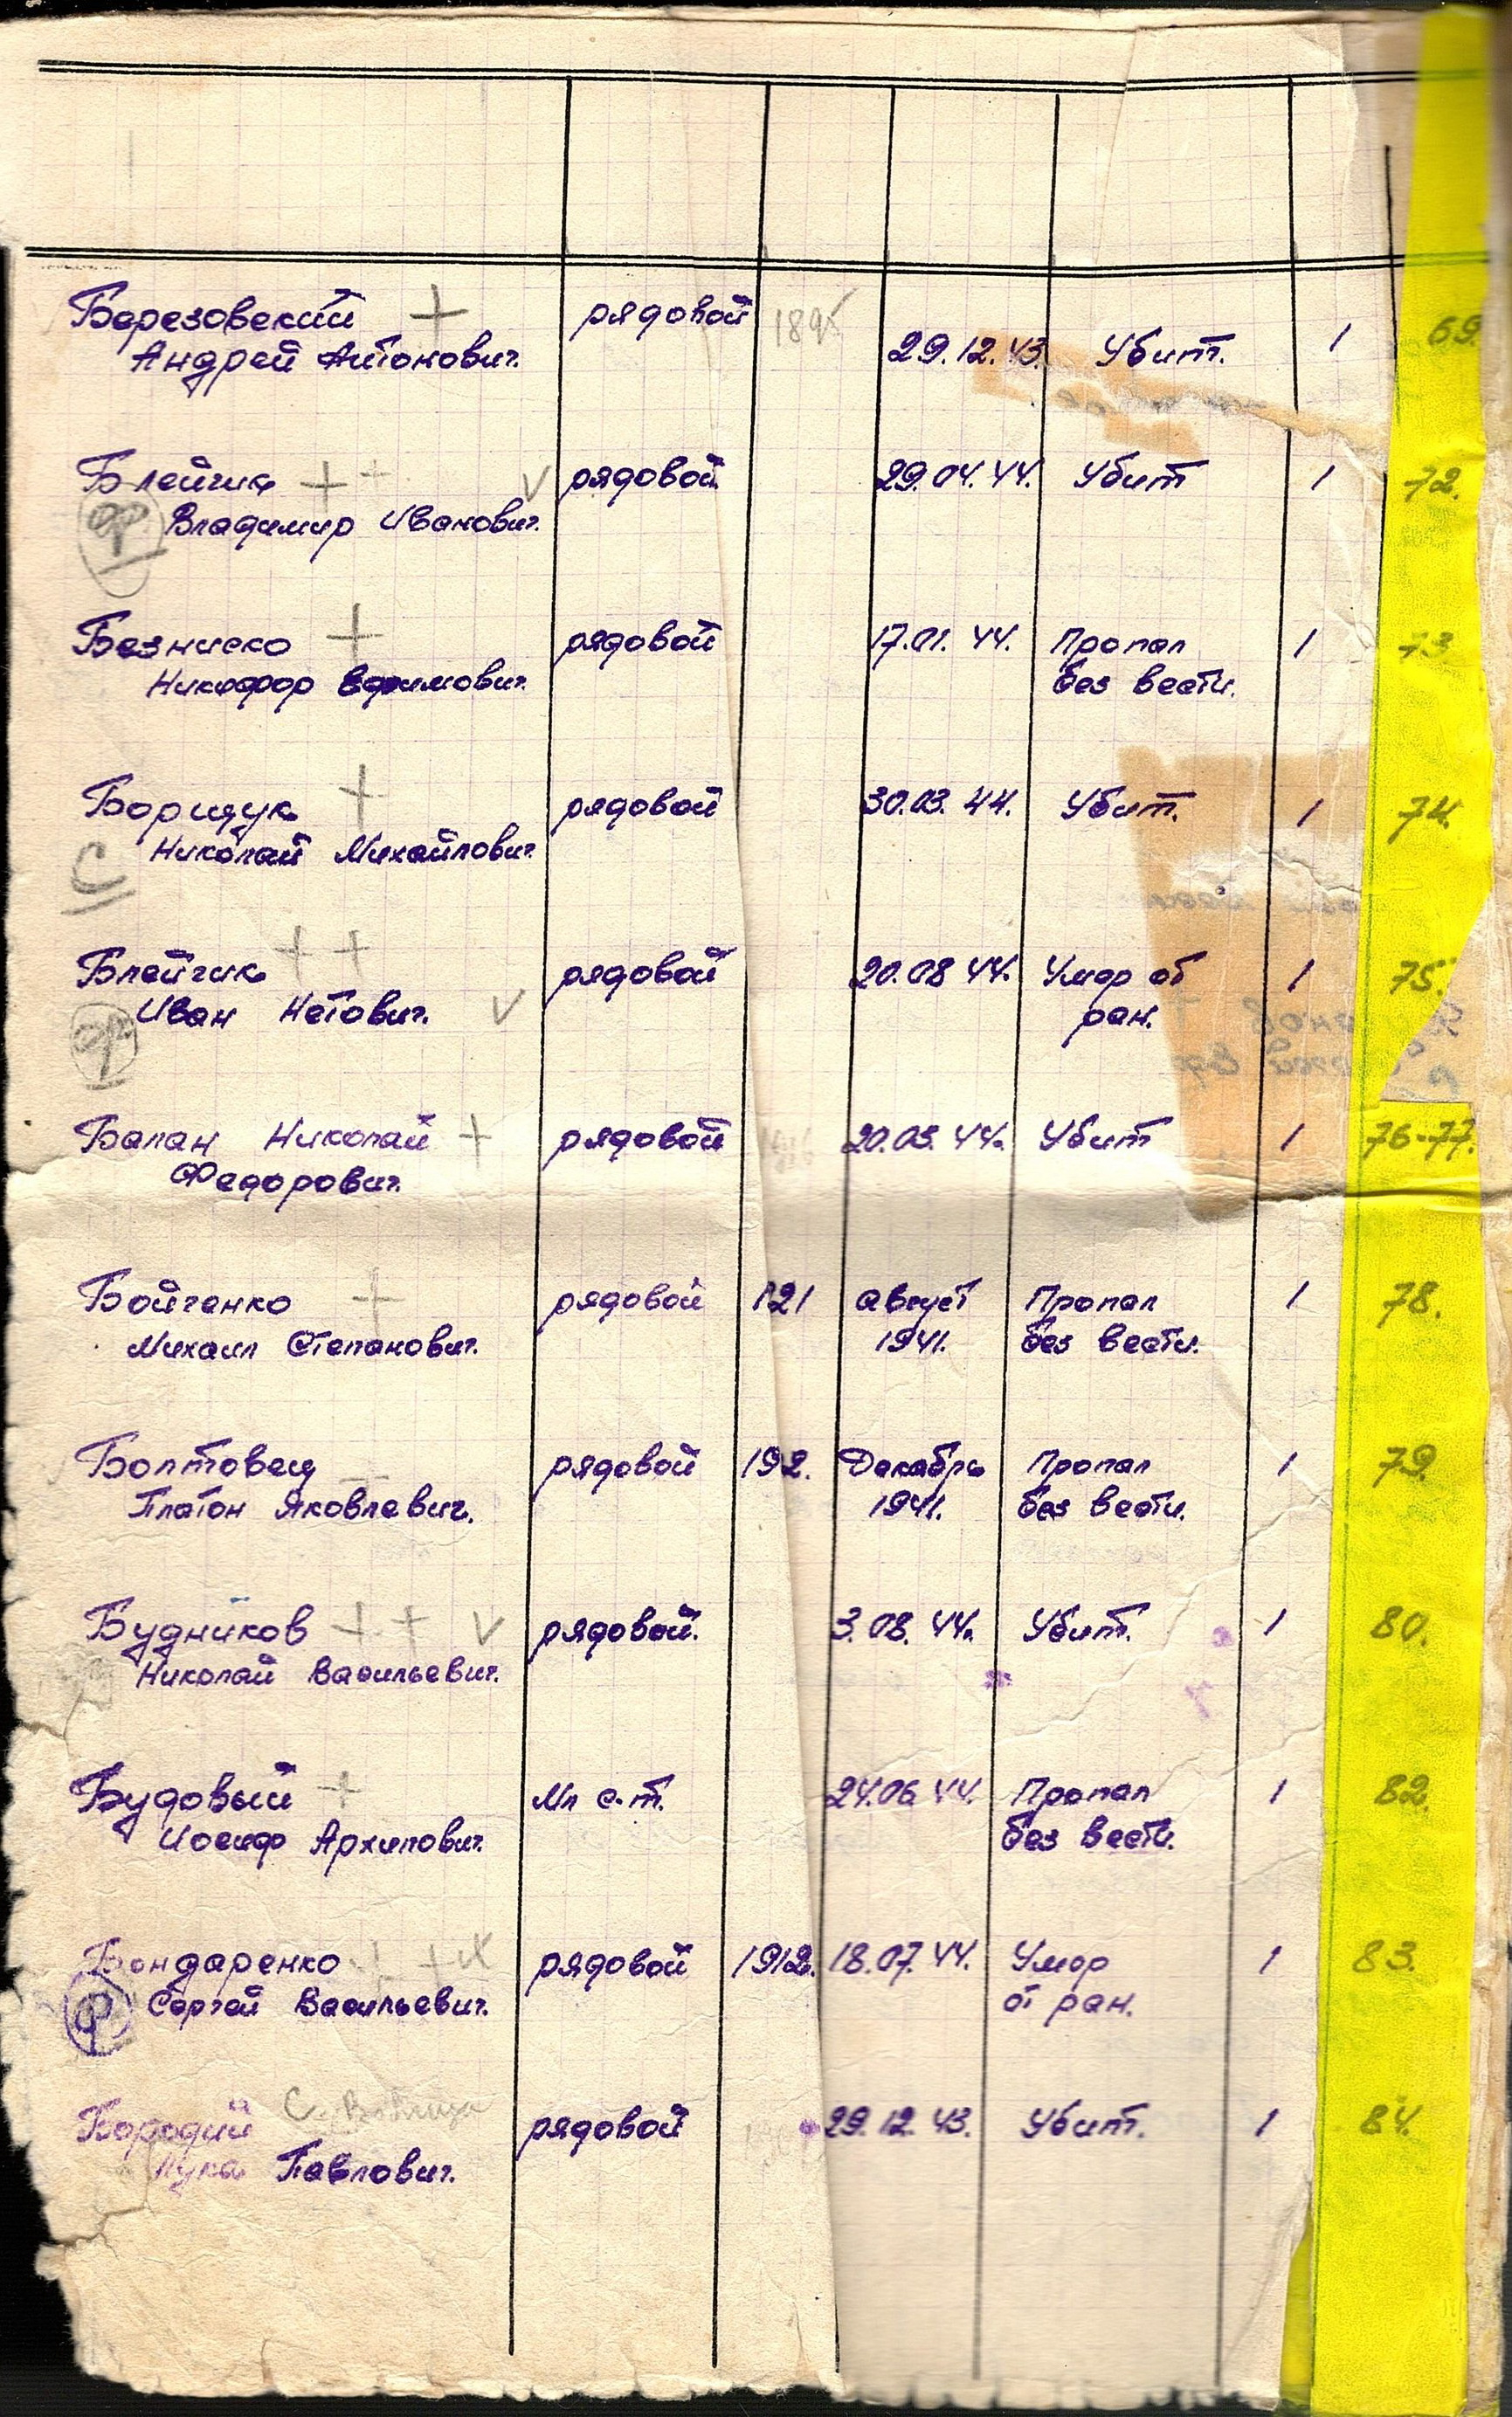 Березовский + рядовой 189
Андрей Антонович. 29.12.43. Убит. 1 69.
Блейчик + + v рядовой 29.04.44. Убит 1 72.
ф Владимир Иванович.
Безниско + рядовой 17.01.44. Пропал 1 73
Никифор Ефимович. без вести.
Борщук + рядовой 30.03.44. Убит. 1 74.
С Николай Михайлович
Блейчик + + рядовой 20.08 44. Умер от 1 75.
ф Иван Нетович. v ран.
Балан Николай + рядовой 20.03.44. Убит 1 76-77.
Федорович.
Бойченко + рядовой 121 август Пропал 1 78.
Михаил Степанович. 1941. без вести.
Болтовец рядовой 192. Декабрь Пропал 1 79.
Платон Яковлевич. 1941. без вести.
Будников + + v рядовой. 3.08.44. Убит. 1 80.
Николай Васильевич.
Будовый + Мл с-т. 24.06.44. Пропал 1 82.
Иосиф Архипович. без вести.
Бондаренко + + рядовой 1912. 18.07.44. Умер 1 83.
ф Сергей Васильевич. от ран.
Бородий С. рядовой 29.12.43. Убит. 1 84.
Лука Павлович.